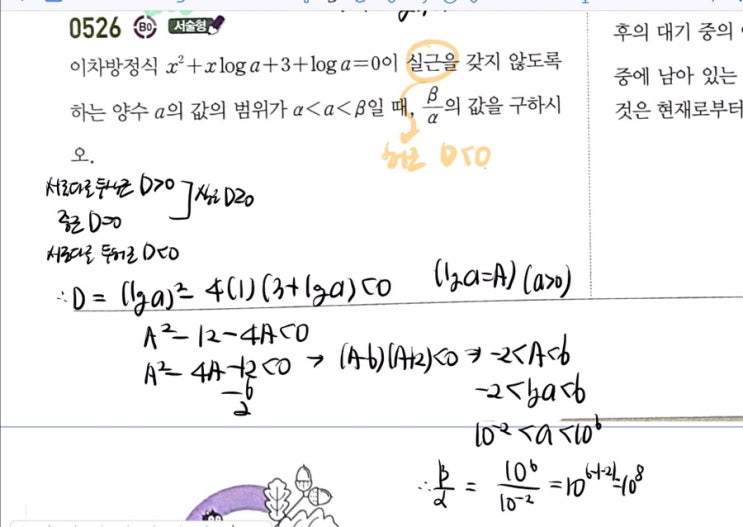 0526 B0 서술형
이차방정식 x²+x log a+3+log a=0이 실근을 갖지 않도록
하는 양수 a의 값의 범위가 α<a<β일 때, β/α의 값을 구하시
오.
허근 D<0
서로다른 두실근 D>0
중근 D=0
실근 D≥0
서로다른 두허근 D<0
∴D = (log a)² - 4(1)(3+log a)<0 (log a=A) (a>0)
A²-12-4A<0
A²-4A-12<0 → (A-6)(A+2)<0 ⇒ -2<A<6
-6
2
-2<log a<6
10⁻²<a<10⁶
∴ β/α = 10⁶/10⁻² = 10⁶⁻⁽⁻²⁾=10⁸
후의 대기 중의
중에 남아 있는
것은 현재로부터